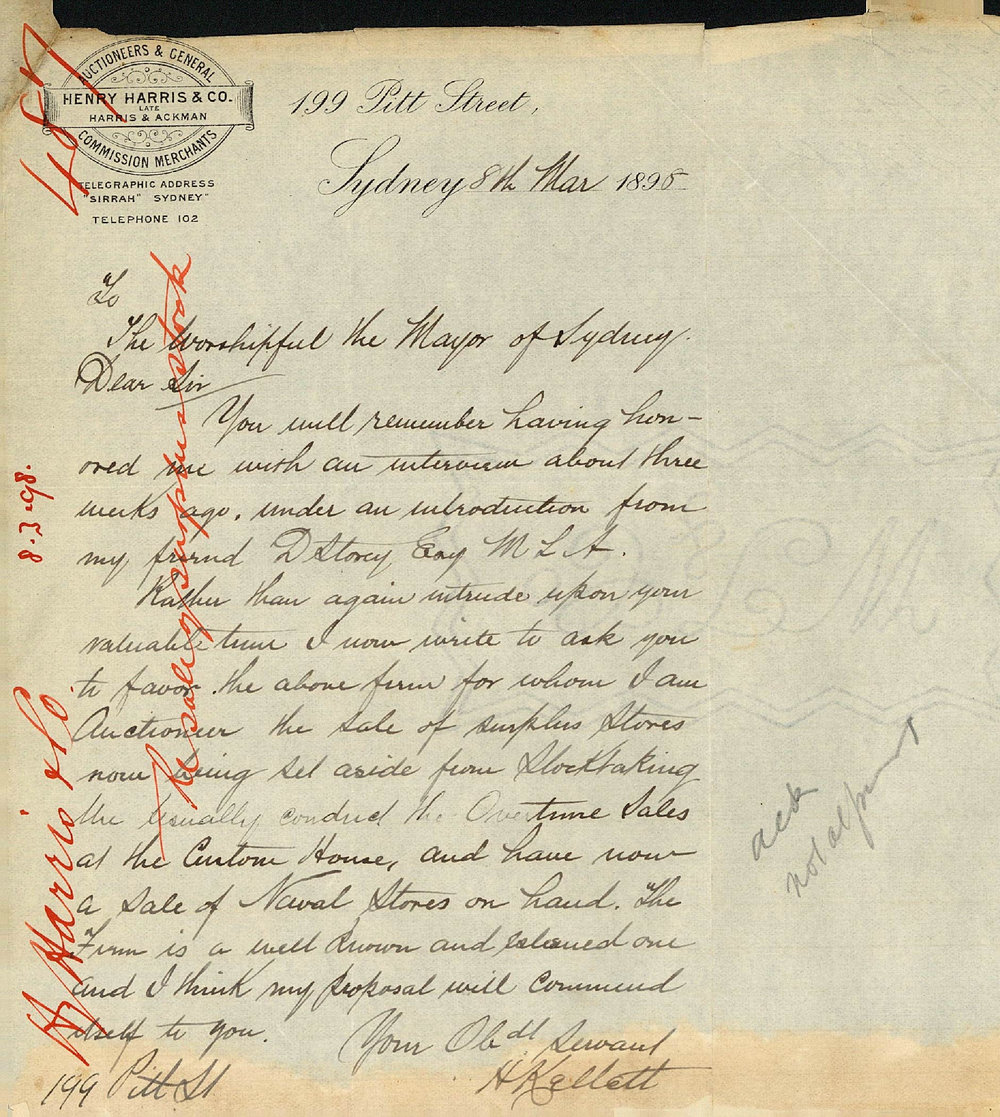 AUCTIONEERS & GENERAL
HENRY HARRIS & CO.
LATE
HARRIS & ACKMAN
COMMISSION MERCHANTS
TELEGRAPHIC ADDRESS
"SIRRAH" SYDNEY"
TELEPHONE 102
199 Pitt Street,
Sydney 8th Mar 1898
To
The Worshipful the Mayor of Sydney.
Dear Sir
You will remember having hon-
ored me with an interview about three
weeks ago. under an introduction from
my friend D Storey Esq M L A.
Rather than again intrude upon your
valuable time I now write to ask you
to favor the above firm for whom I am
Auctioneer the sale of surplus Stores
now being set aside from Stocktaking
We usually conduct the Overtime Sales
at the Custom House, and have now
a Sale of Naval Stores on hand. The
Firm is a well known and esteemed one
and I think my proposal will commend
itself to you.
Your Obdt Servant
H Kellett
199 Pitt St
487
8.3.98.
H Harris & Co.
Re sale of surplus stock
ack
not at present